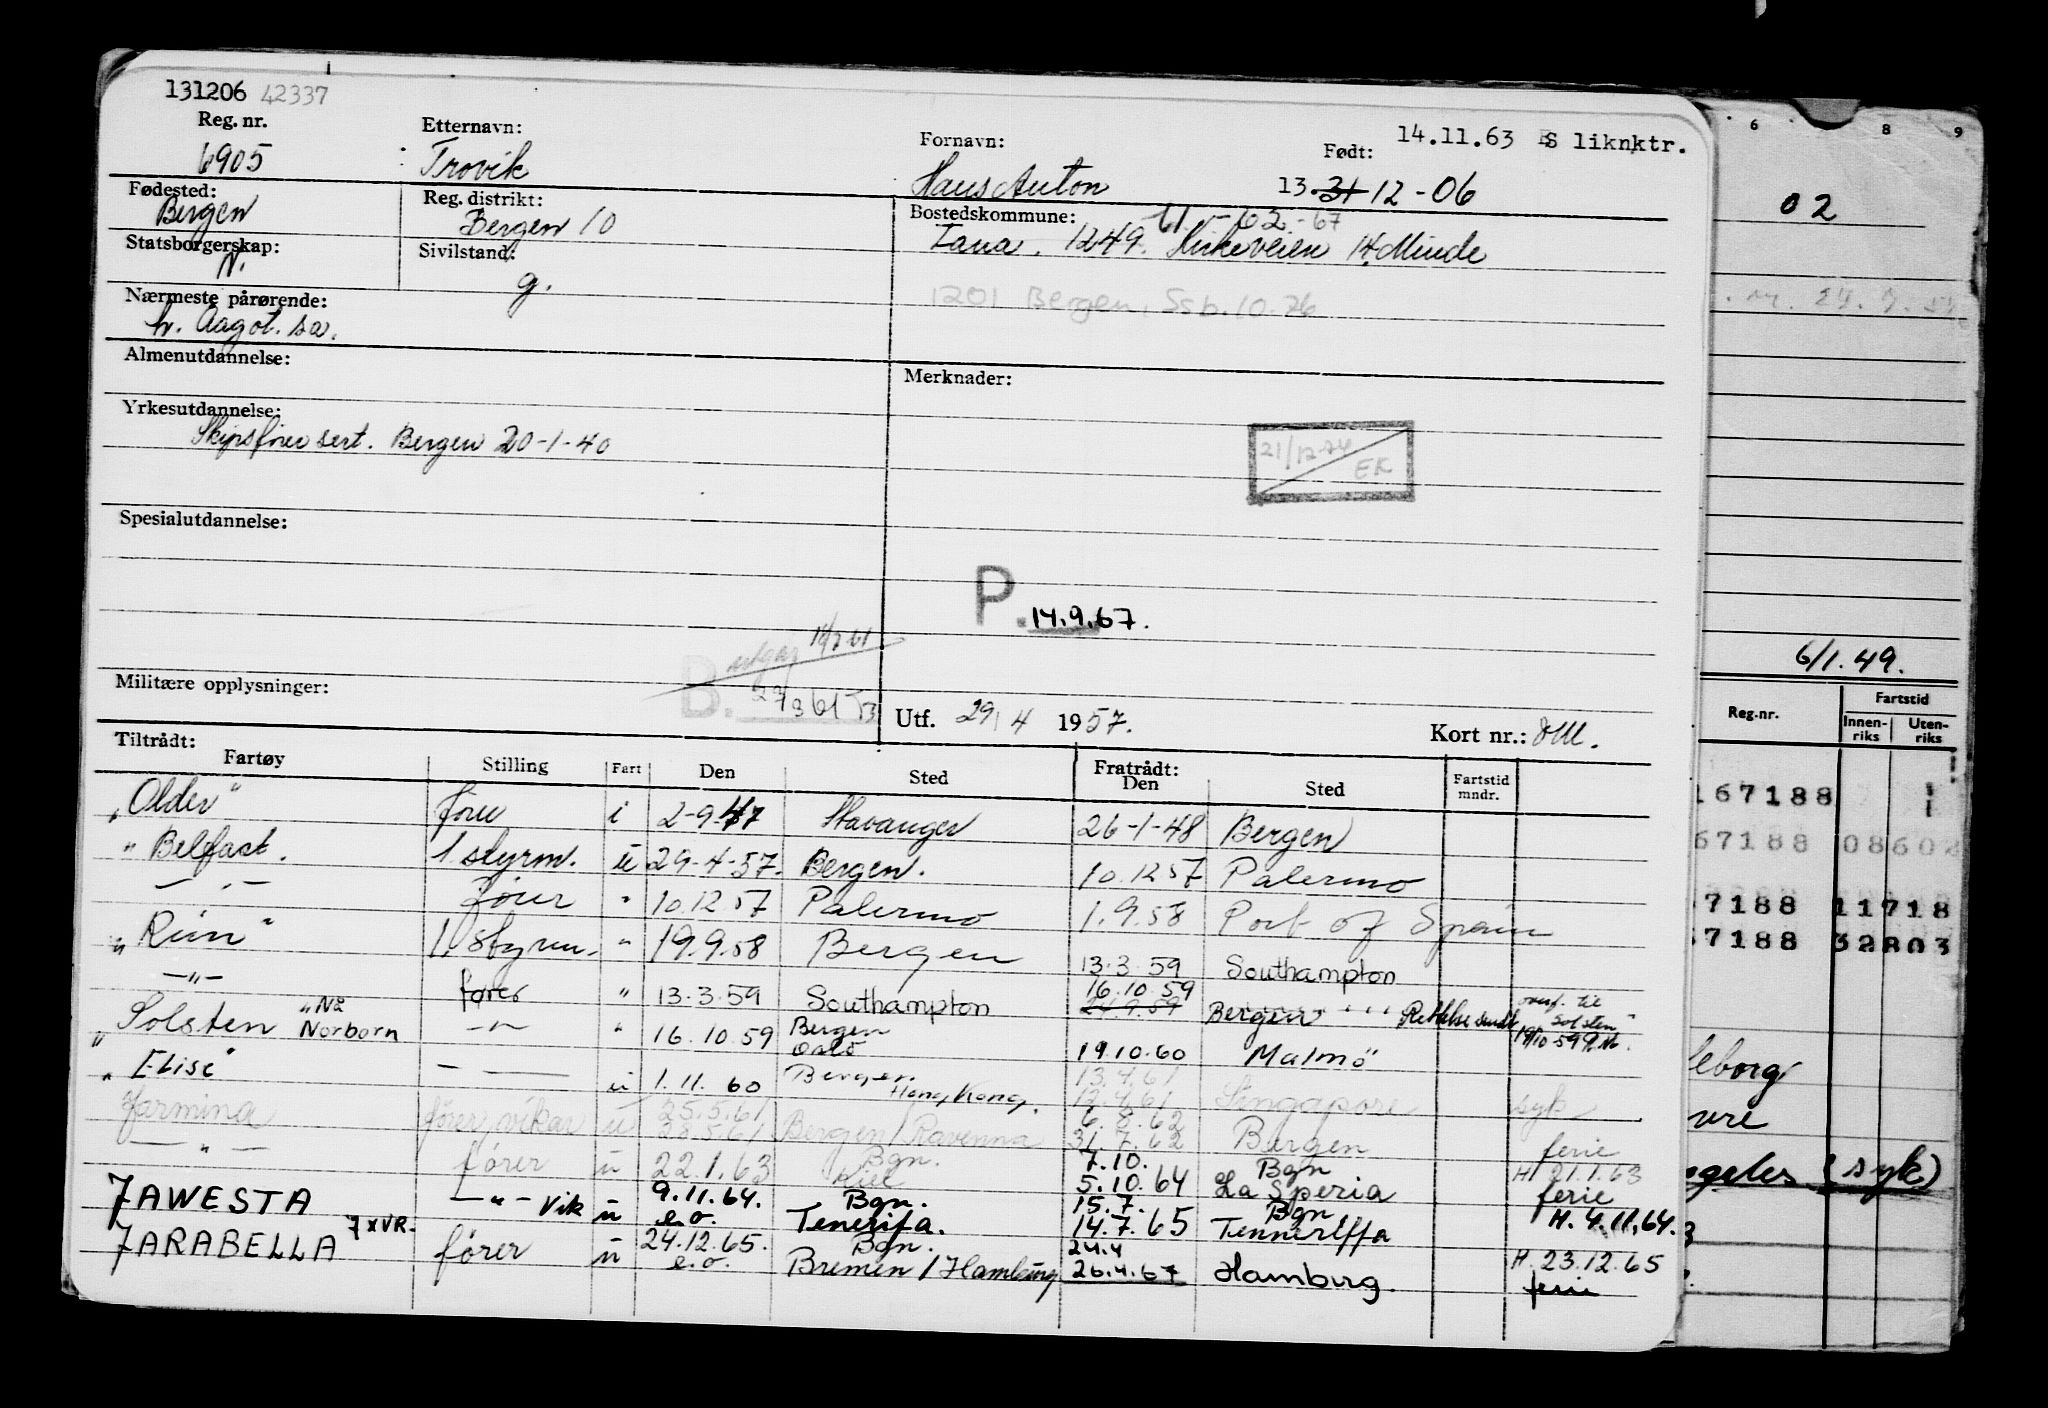 131206 42337
14.11.63 BS liknktr.
Reg. nr. Etternavn: Fornavn: Født:
6905 Trovik Hans Anton 13. 31 12 - 06
Fødested: Reg. distrikt: Bostedskommune: 61 - 62 - 67
Bergen Bergen 10 Fana. 1249. Kirkeveien 14. Minde
Statsborgerskap: Sivilstand:
N. g.
1201 Bergen, Ssb. 10.76
Nærmeste pårørende:
h. Aagot. sa.
Almenutdannelse: Merknader:
Yrkesutdannelse:
Skipsfører sert. Bergen 20-1-40
21/12-74 EK
Spesialutdannelse:
P. 14.9.67.
utgår
B.
Militære opplysninger:
Utf. 29/4 1957. Kort nr.:
Tiltrådt: Fratrådt:
Fartøy Stilling Fart Den Sted Den Sted Fartstid mndr.
"Older" fører i 2-9-47 Stavanger 26-1-48 Bergen
" Belfast. 1 styrm. u 29-4-57. Bergen. 10.12.57 Palermo
— " — fører " 10.12.57 Palermo 1.9.58 Port of Spain
"Rim" 1. styrm. " 19.9.58 Bergen 13.3.59 Southampton
— " — fører " 13.3.59 Southampton 16.10.59 24.9.59 Bergen Rettelse sendt overf. til "Solsten"
"Solsten "Nå Norborn — " — " 16.10.59 Bergen Oslo 19.10.60 Malmö
" Elise" — — u 1.11.60 Bergen. Hong Kong. 13.4.61 12.4.61 Singapore syk
Jarmina fører vikar u 25.5.61 28.5.61 Bergen / Ravenna 6.8.62 31.7.62 Bergen ferie
— " — fører u 22.1.63 Bgn. Kiel 7.10. 5.10.64 Bgn La Speria H 21.1.63 ferie
JAWESTA — " — Vik u 9.11.64. e.o. Bgn. Tenerifa. 15.7. 14.7.65 Bgn Tenneriffa H. 4.11.64.
JARABELLA 7 x VR. fører u 24.12.65. e.o. Bgn. Bremen / Hamburg 24.4 26.4.67 Hamburg. H. 23.12.65 ferie
6 8 9
02
6/1.49.
Reg.nr. Fartstid
Innenriks Utenriks
167188
67188 08602
7188 11718
7188 32803
leborg
vre
ngeles (syk)